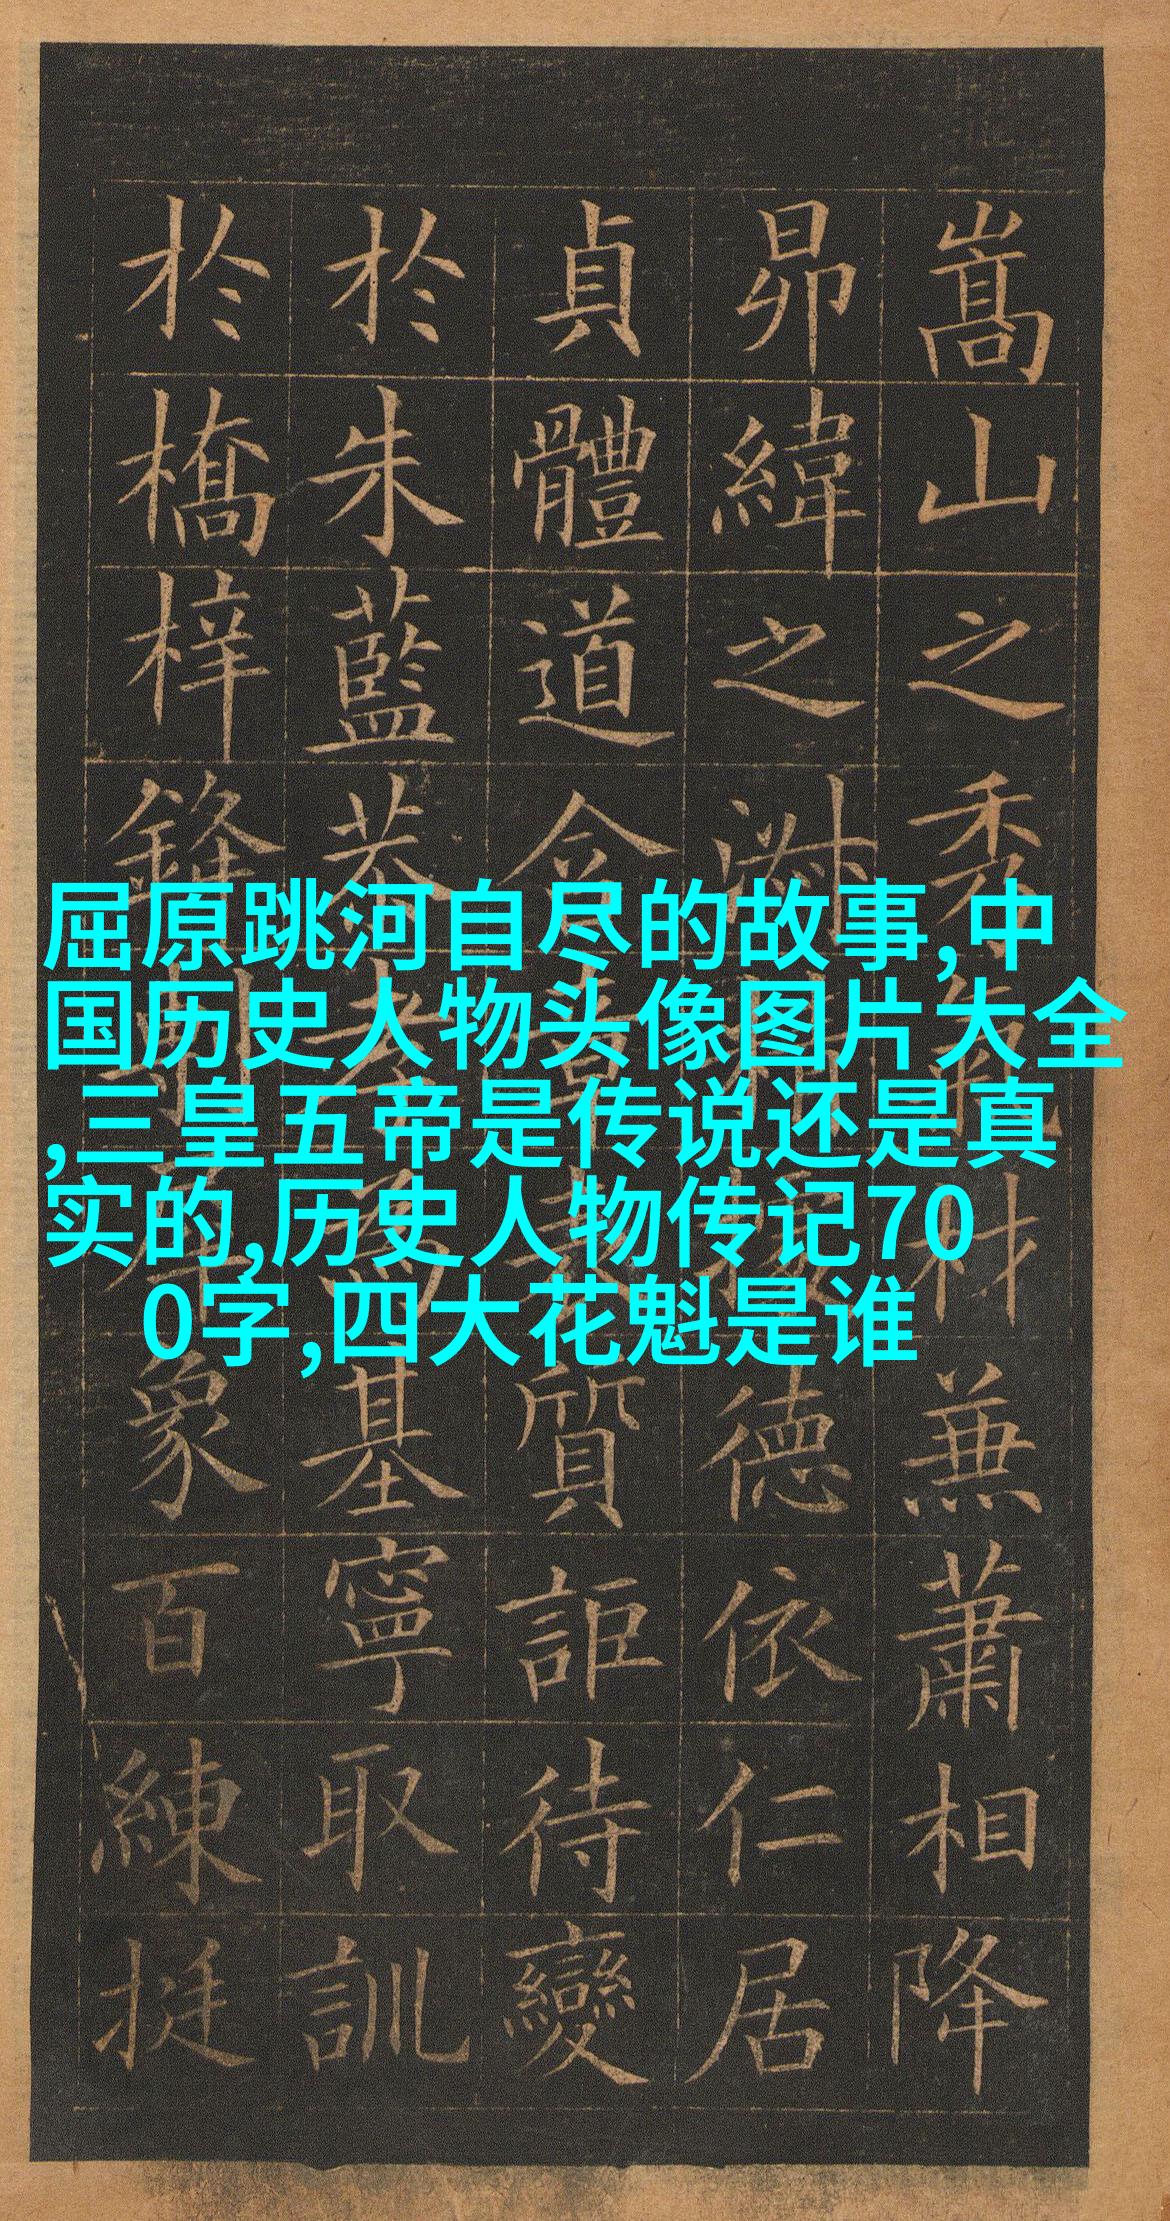 嵩山之秀氣材兼蕭相降
昴緯之淑精據德依仁居
貞體道含章表質詎待變
於朱藍恭孝為基寧取訓
於橋梓鋒剸犀象百練挺
屈原跳河自尽的故事,中
国历史人物头像图片大全
,三皇五帝是传说还是真
实的,历史人物传记70
0字,四大花魁是谁